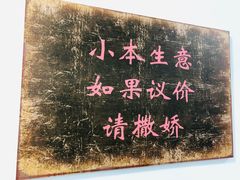 小本生意
如果议价
请撒娇